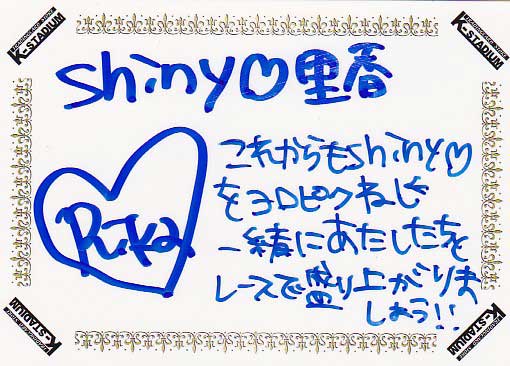 shiny♡里香
Rika
これからもshiny♡
をヨロピクねじゃ
一緒にあたしたちを
レースで盛り上がりま
しょう!!
K-STADIUM
K-STADIUM
K-STADIUM
K-STADIUM